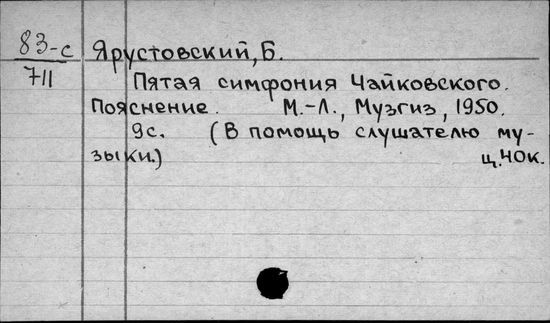 83-с
711
Ярустовский, Б.
Пятая симфония Чайковского.
Пояснение. М.-Л., Музгиз, 1950.
9с. (В помощь слушателю му-
зыки.) ц. 40к.